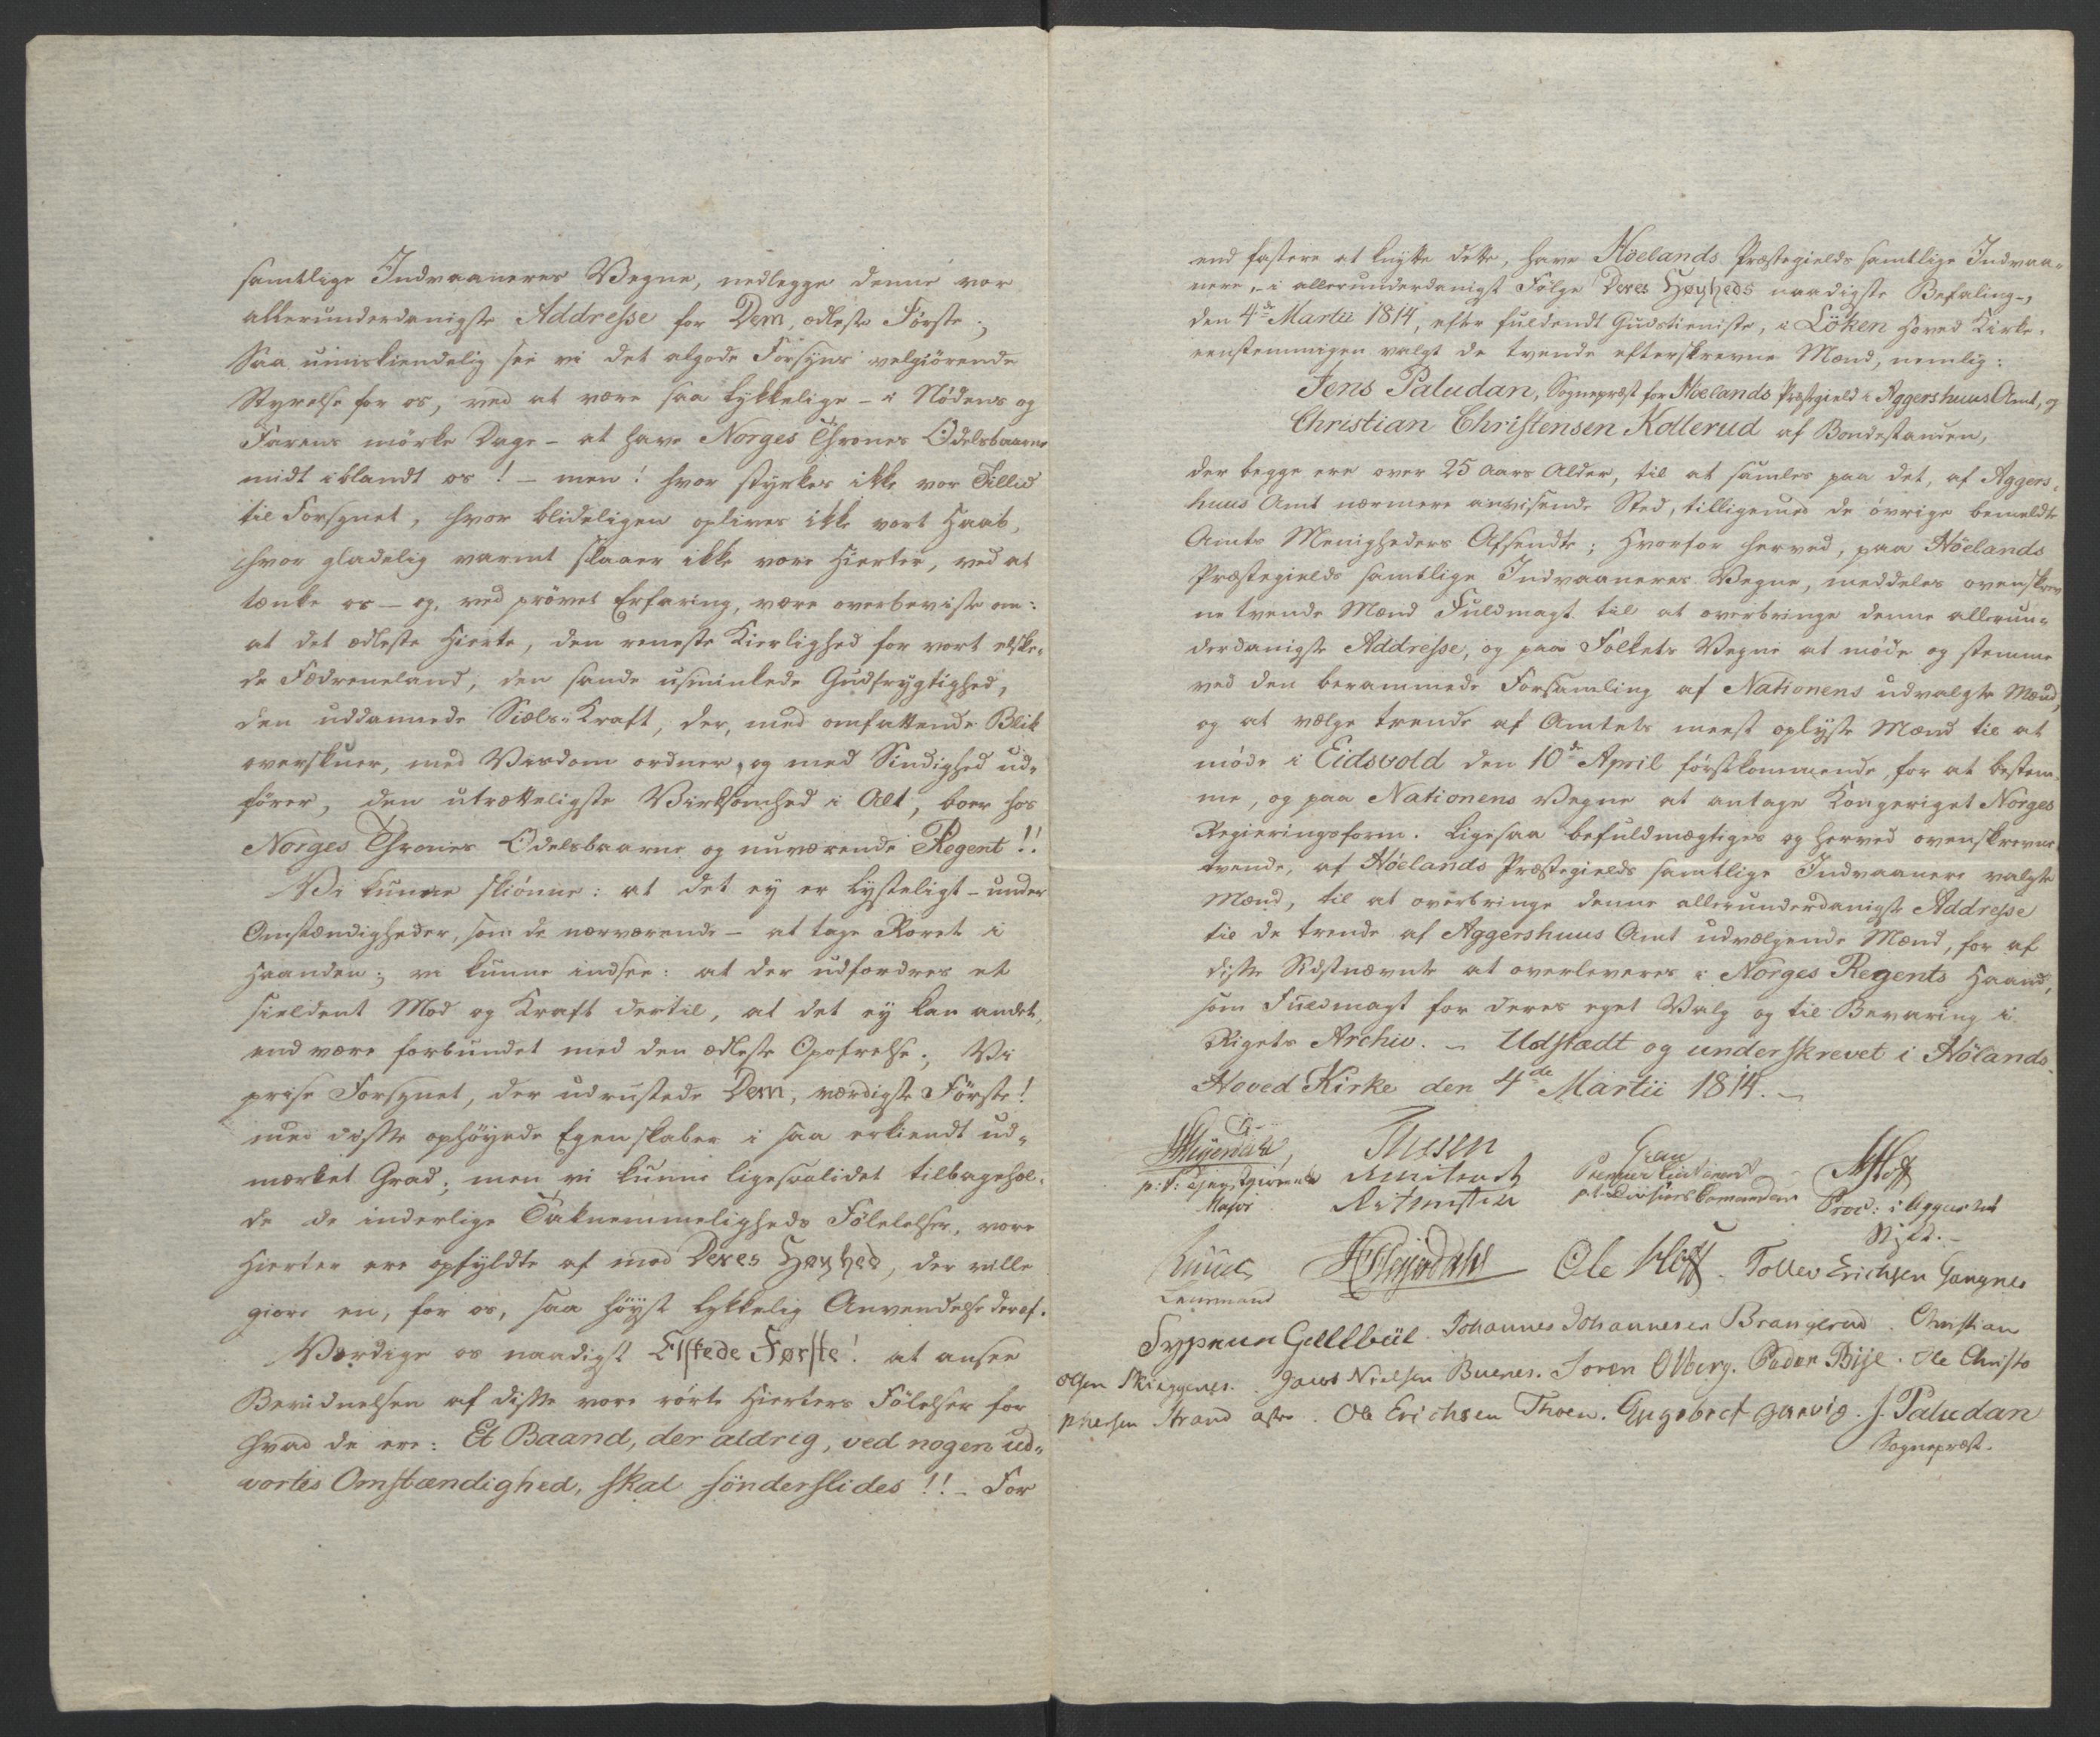 samtlige Indvaaneres Vegne, nedlegge denne vor
allerunderdanigste Addresse for Dem, ædleste Første;
Saa umiskiendelig see vi det algode Forsyns velgiørende
Styrelse for os, ved at være saa lykkelige – i Nødens og
Farens mörke Dage – at have Norges Thrones Odelsbaarne
midt iblandt os! – men! hvor styrkes ikke vor Tillid
til Forsynet, hvor blideligen oplives ikke vort Haab,
hvor gladelig varmt slaaer ikke vore Hierter, ved at
tænke os – og, ved prövet Erfaring, være overbeviiste om:
at det ædleste Hierte, den reneste Kierlighed for vort elske-
de Fædreneland, den sande usminkede Gudfrygtighed,
den uddannede Siæls-Kraft, der, med omfattende Blik
overskuer, med Viisdom ordner, og med Sindighed ud-
förer, den utrætteligste Virksomhed i Alt, boer hos
Norges Thrones Odelsbaarne og nuværende Regent!!
Vi kunne skiönne: at det ey er lysteligt – under
Omstændigheder, som de nærværende – at tage Roret i
Haanden; vi kunne indsee: at der udfordres et
sieldent Mod og Kraft dertil, at det ey kan andet,
end være forbundet med den ædleste Opofrelse; Vi
prise Forsynet, der udrustede Dem, værdigste Förste!
med disse ophöyede Egenskaber i saa erkiendt ud-
mærket Grad; men vi kunne ligesaalidet tilbagehol-
de de inderlige Taknemmeligheds Fölelser, vore
Hierter ere opfyldte af mod Deres Høyhed, der ville
giøre en, for os, saa höyst lykkelig Anvendelse deraf.
Værdige os naadigst Elskede Første! at ansee
Bevidnelsen af disse vore rörte Hierters Fölelser for
hvad de ere: Et Baand, der aldrig, ved nogen ud-
vortes Omstændighed, skal sönderslides!! – For
end fastere at knytte dette, have Höelands Præstegields samtlige Indvaa-
nere, – i allerunderdanigst Fölge Deres Høyheds naadigste Befaling –,
den 4de Martii 1814, efter fuldendt Gudstieniste, i Löken Hoved Kirke,
eenstemmigen valgt de tvende efterskrevne Mænd, nemlig:
Jens Paludan, Sognepræst for Höelands Præstegield i Aggershuus Amt, og
Christian Christensen Kollerud af Bondestanden,
der begge ere over 25 Aars Alder, til at samles paa det, af Aggers-
huus Amt nærmere anvisende Sted, tilligemed de övrige bemeldte
Amts Menigheders Afsendte; Hvorfor herved, paa Höelands
Præstegields samtlige Indvaaneres Vegne, meddeles ovenskrev
ne tvende Mænd Fuldmagt til at overbringe denne allerun-
derdanigste Addresse, og paa Folkets Vegne at møde og stemme
ved den berammede Forsamling af Nationens udvalgte Mænd,
og at vælge trende af Amtets meest oplyste Mænd til at
møde i Eidsvold den 10de April förstkommende, for at bestem-
me, og paa Nationens Vegne at antage Kongeriget Norges
Regieringsform. Ligesaa befuldmægtiges og herved ovenskrevne
tvende, af Höelands Præstegields samtlige Indvaanere valgte
Mænd, til at overbringe denne allerunderdanigste Addresse
til de trende af Aggershuus Amt udvælgende Mænd, for af
disse Sidstnævnte at overleveres i Norges Regents Haand,
som Fuldmagt for deres eget Valg og til Bevaring i
Rigets Archiv. – Udstædt og underskrevet i Hölands
Hoved Kirke den 4de Martii 1814. –
Thesen
Grau
MHoff
p: t:
Auriteur
Premier Lieutenant
Major
Ritmester
p.t. Divisions Comandeur
Proc: i Aggershuus
Stift. –
Ole Hoff. Tollev Erichsen Gangnes
Lensmand
Gullbül. Johannes Johannesen Brangerud. Christian
Olsen. Jacob Nielsen Buenes. Soren Olberg. Peder Bise. Ole Christo
phersen Strand. Ole Erichsen Thoen. Engebret. J. Paludan
Sognepræst.